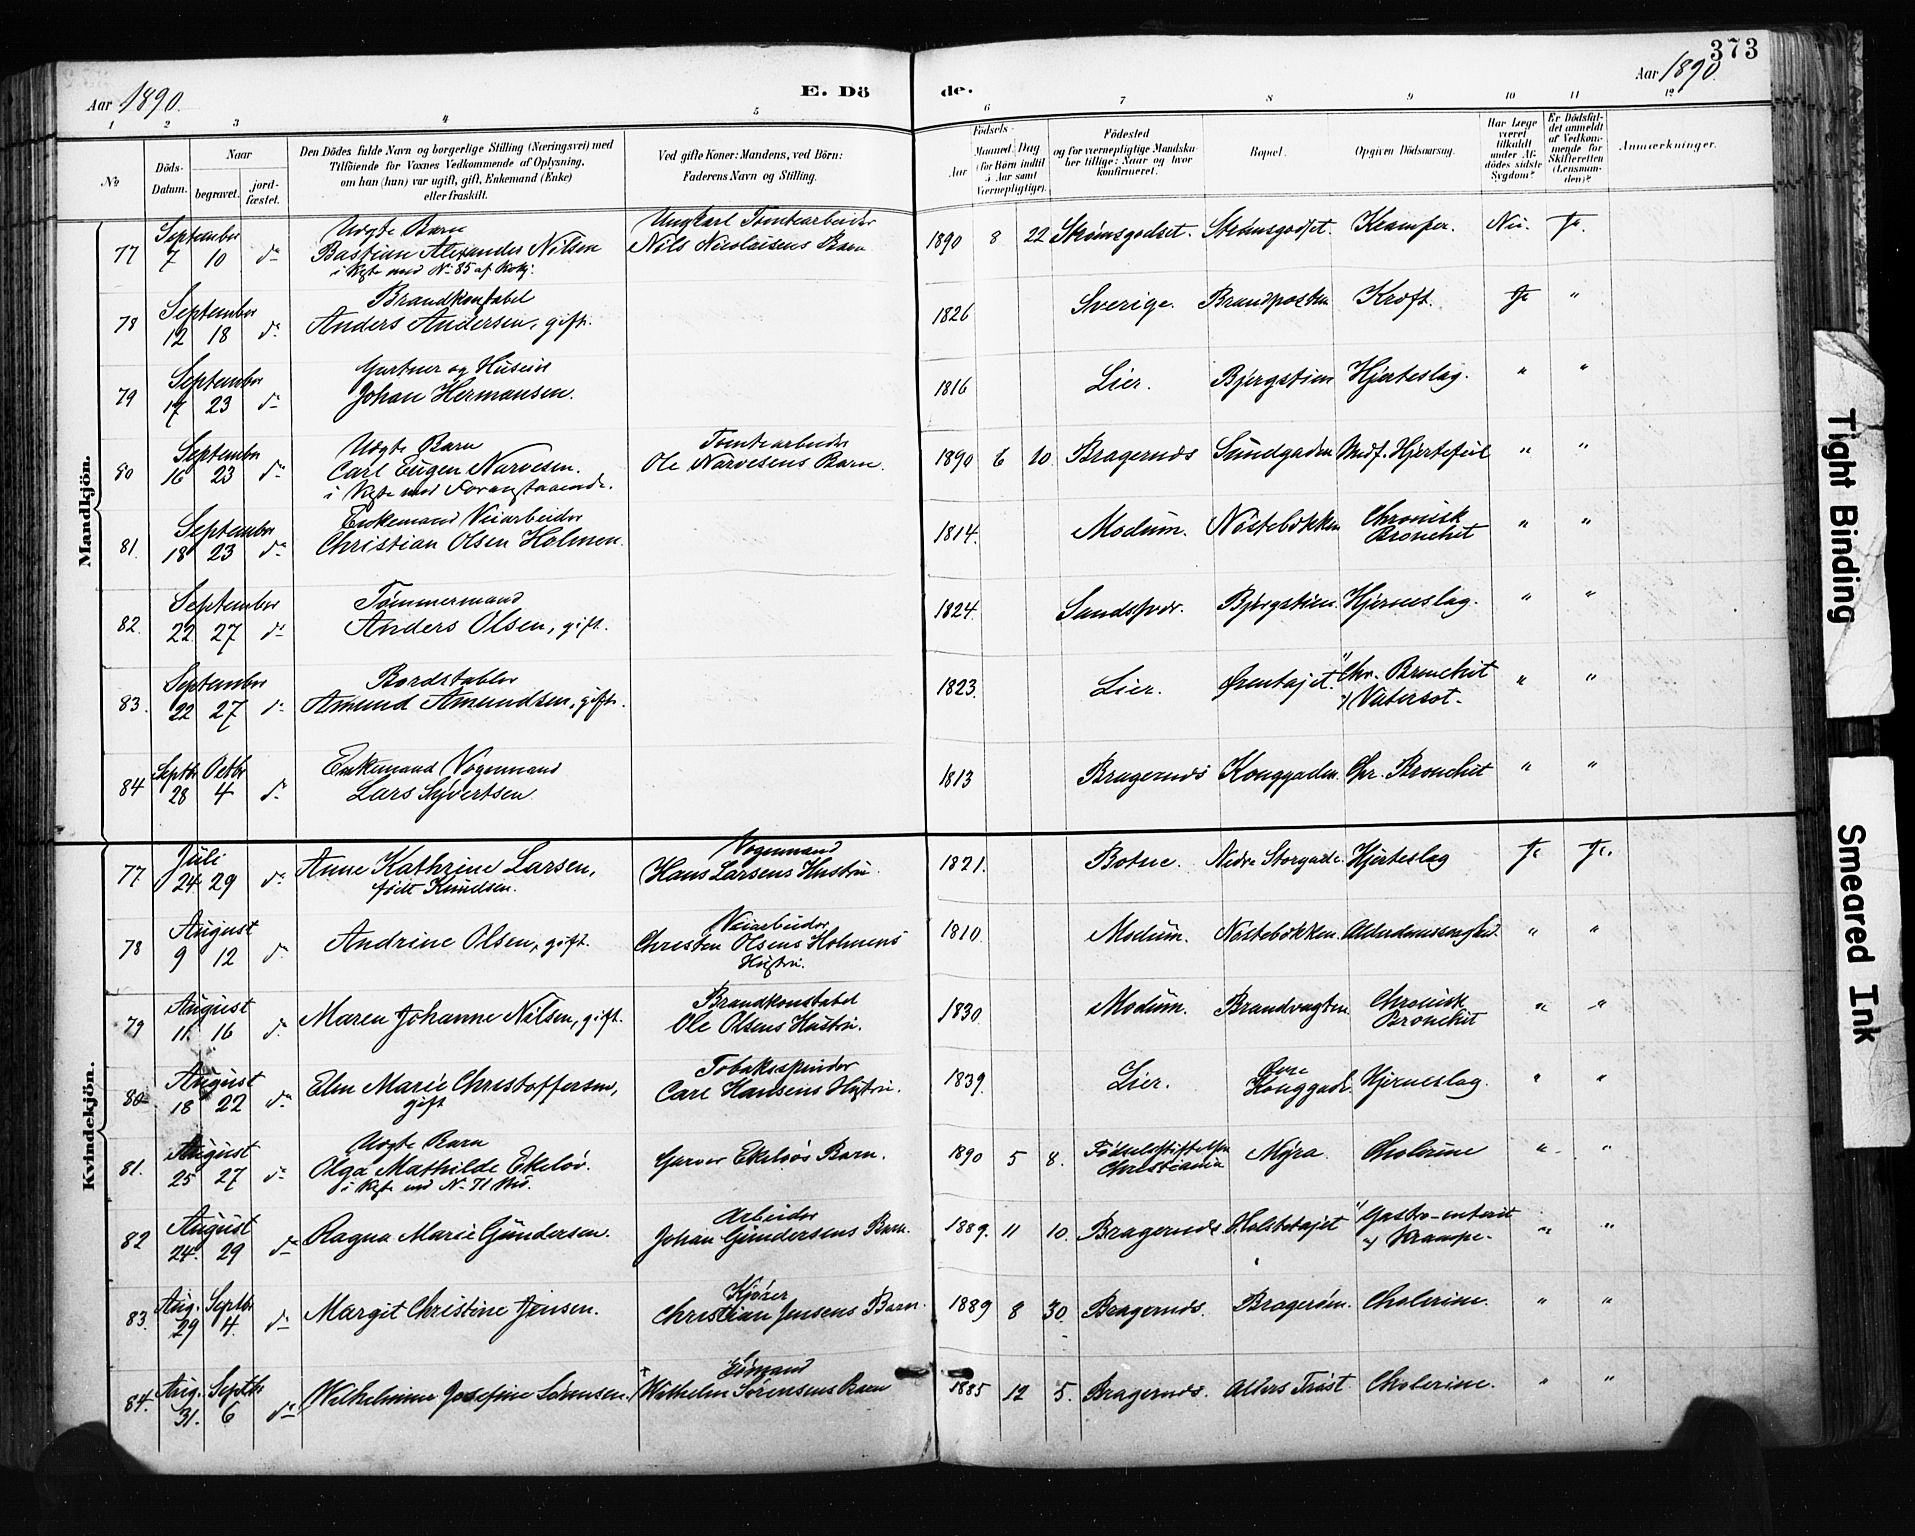 373
Aar 1890.
E. Dö
de.
Aar 1890.
1 2 3 4 5 6 7 8 9 10 11 12
No
Döds-Datum.
Naar
begravet.
jord-fæstet.
Den Dödes fulde Navn og borgerlige Stilling (Næringsvei) med
Tilföiende for Voxnes Vedkommende af Oplysning,
om han (hun) var ugift, gift, Enkemand (Enke)
eller fraskilt.
Ved gifte Koner: Mandens, ved Börn:
Faderens Navn og Stilling.
Födsels-
Aar
Maaned Dag
(for Börn indtil
5 Aar samt
Værnepligtige).
Födested
og for værnepligtige Mandska-
ber tillige: Naar og hvor
konfirmeret.
Bopæl.
Opgiven Dödsaarsag.
Har Læge
været
tilkaldt
under Af-
dödes sidste
Sygdom?
Er Dödsfal-
det anmeldt
af Vedkom-
mende for
Skifteretten
(Lensman-
den)?
Anmærkninger.
Mandkjön.
September Uægte Barn Ungkarl Tomtearbeider
77 7 10 do Bastian Alexander Nilsen Nils Nicolaisens Barn 1890 8 22 Strömsgodset. Strömsgodset. Kramper. Nei. Ja.
i Kgte med No 85 af
September Brandkonstabel
78 12 18 do Anders Andersen, gift. 1826 Sverige. Brandposten Kræft. Ja "
September Gartner og Huseier
79 17 23 do Johan Hermansen. 1816 Lier. Bjergstien Hjerteslag. " "
September Uægte Barn Tomtearbeider
80 16 23 do Carl Eugen Narvesen. Ole Narvesens Barn. 1890 6 10 Bragernæs Sundgaden Medf. Hjertefeil " "
i Kgte med Foranstaaende.
September Enkemand Veiarbeider
81. 18 23 do Christian Olsen Holmen. 1814. Modum. Nöstebökken Chronisk Bronchit " "
September Tömmermand
82. 22 27 do Anders Olsen, gift. 1824. Sandsvær. Bjergstien. Hjerneslag. " "
September Bordstabler
83. 22 27 do Amund Amundsen, gift. 1823. Lier. Örentajet. Chr. Bronchit
Vatersot.
" "
Septbr Octbr Enkemand Vognmand
84 28 4 do Lars Syvertsen 1813 Bragernæs Konggaden. Chr. Bronchit " "
Kvindekjön.
Juli Vognmand
77 24 29 do Anne Kathrine Larsen, Hans Larsens Hustru. 1821. Botne. Nedre Storgade. Hjerteslag Ja Ja.
födt Knudsen.
August Veiarbeider
78 9 12 do Andrine Olsen, gift. Christen Olsens Holmens 1810. Modum. Nöstebökken. Alderdomssvaghed. " "
Hustru.
August Brandkonstabel
79 11. 16 do Maren Johanne Nilsen, gift. Ole Olsens Hustru. 1830. Modum. Brandvagten Chronisk Bronchit " "
August Tobaksspinder
80 18 22 do Elen Marie Christoffersen, Carl Hansens Hustru. 1839. Lier. Övre Konggade. Hjerneslag. " "
gift
August Uægte Barn
81. 25 27 do Olga Mathilde Ekelöv. Garver Ekelövs Barn. 1890 5 8. Födselsstiftelsen Christiania Myra. Cholerine " "
i Kgte med No 71
August Arbeider
82 24. 29 do Ragna Marie Gundersen. Johan Gundersens Barn. 1889. 11 10. Bragernæs. Holstetajet Gastro-enterit
Krampe.
" "
Aug. Septbr Kjörer
83. 29 4. do Margit Christine Jensen. Christian Jensens Barn. 1889 8 30. Bragernæs. Brageröen. Cholerine. " "
Aug. Septbr Sömand
84. 31. 6 do Wilhelmine Josefine Sörensen. Wilhelm Sörensens Barn 1885 12 5. Bragernæs. Alders Tröst Cholerine. " "
Tight Binding
Smeared Ink